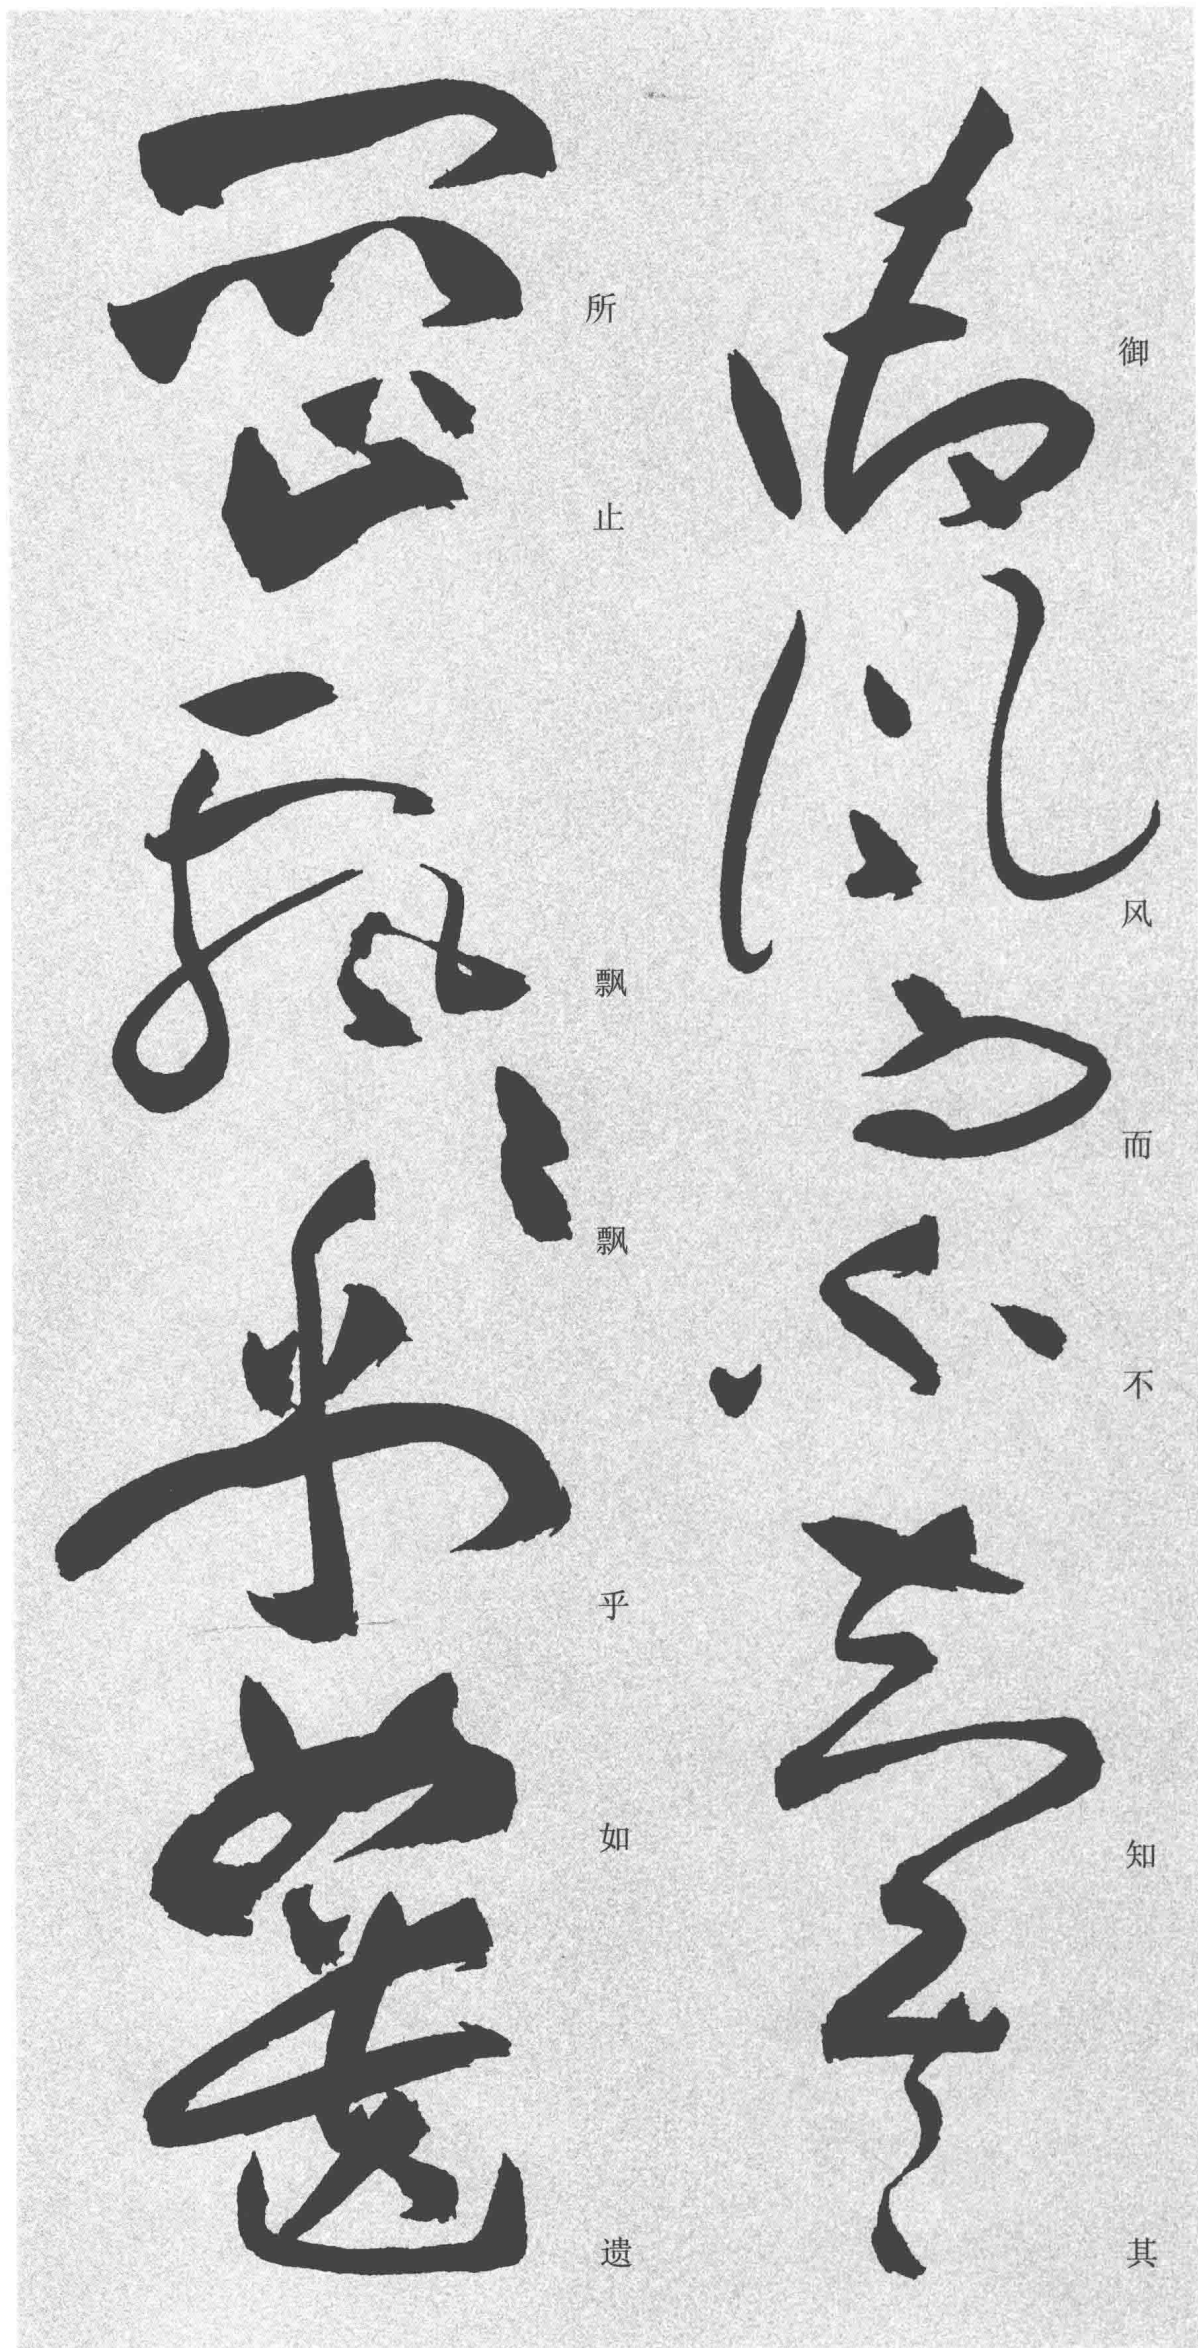 御风而不知其
所止飘飘乎如遗